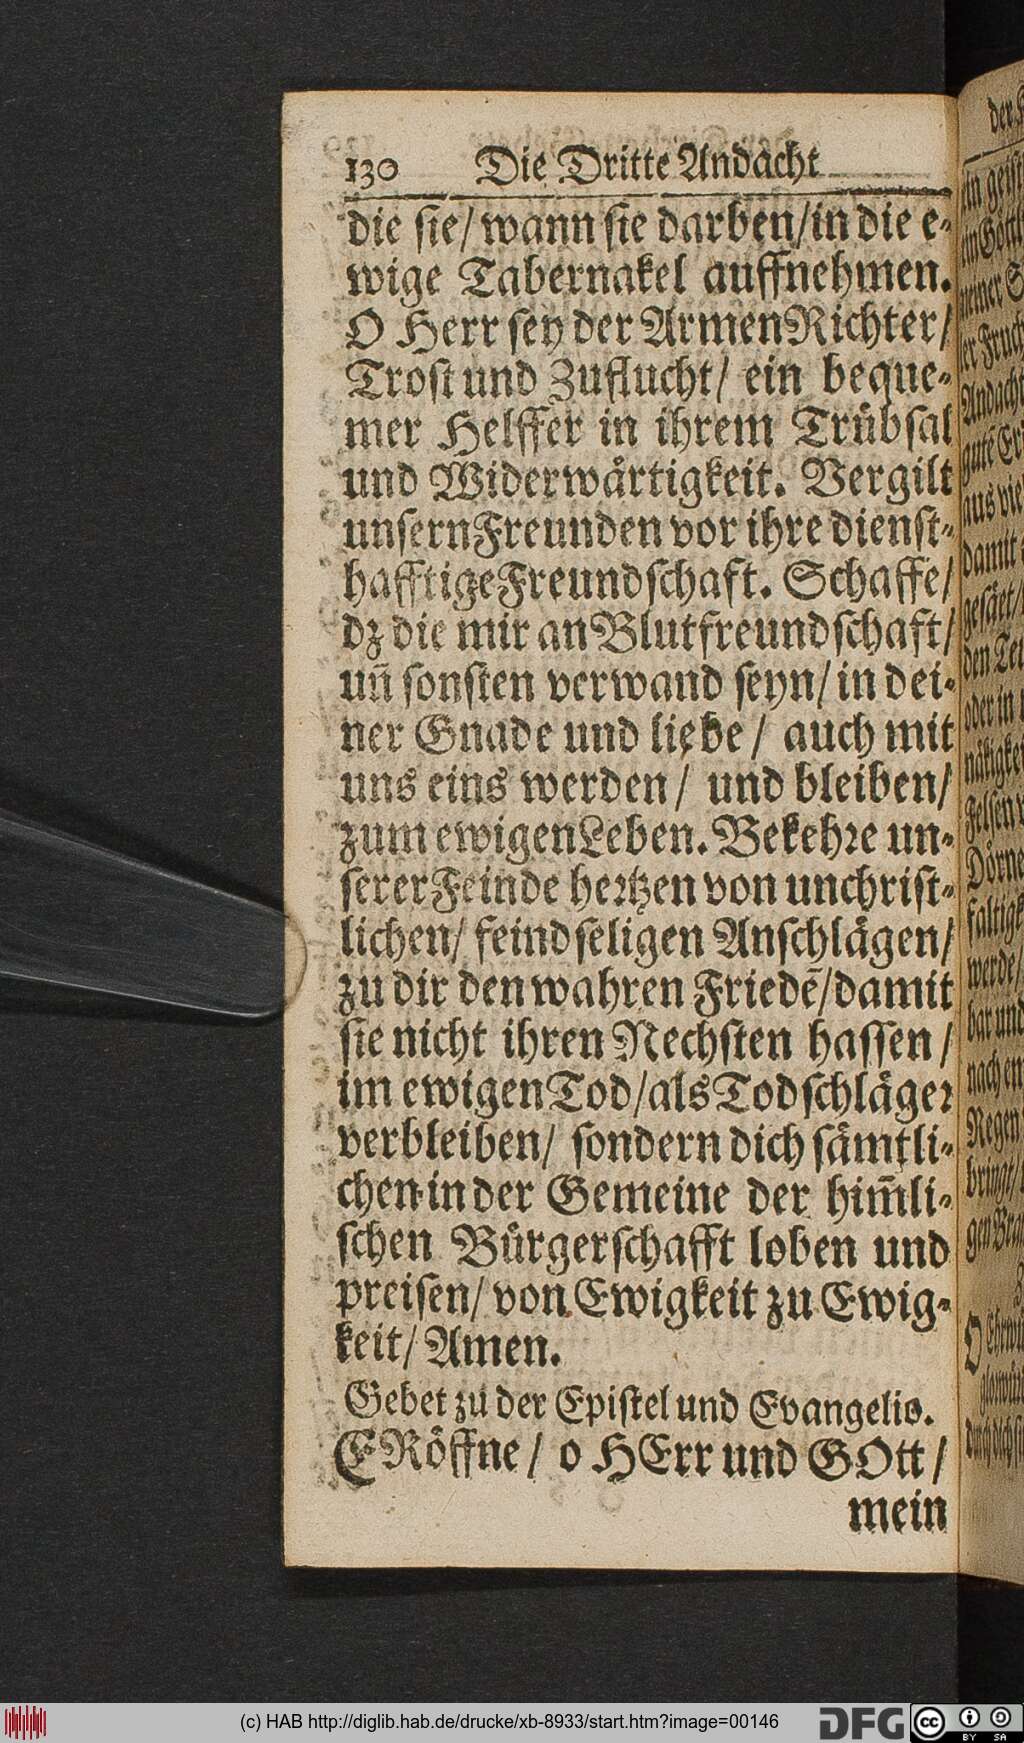 130 Die Dritte Andacht
die sie/ wann sie darben/in die e-
wige Tabernakel auffnehmen.
O Herr sey der Armen Richter/
Trost und Zuflucht/ ein beque-
mer Helffer in ihrem Trübsal
und Widerwärtigkeit. Vergilt
unsern Freunden vor ihre dienst-
hafftige Freundschaft. Schaffe/
dz die mir an Blutfreundschaft/
uñ sonsten verwand seyn/ in dei-
ner Gnade und liebe/ auch mit
uns eins werden/ und bleiben/
zum ewigen Leben. Bekehre un-
serer Feinde hertzen von unchrist-
lichen/ feindseligen Anschlägen/
zu dir den wahren Friedē/damit
sie nicht ihren Nechsten hassen/
im ewigen Tod/als Todschläger
verbleiben/ sondern dich sämtli-
chen in der Gemeine der him̃li-
schen Bürgerschafft loben und
preisen/ von Ewigkeit zu Ewig-
keit/ Amen.
Gebet zu der Epistel und Evangelio.
ERöffne/ o HErr und GOtt/
mein
der
ein geist
ein Göttl
nemer S
der Fruch
Andacht
gutē Er
aus vie
damit
gesäet/
den Tei
oder in
Felsen
Dörne
faltigk
werde/
bar und
nach em
Regen
bringt/
O
(c) HAB http://diglib.hab.de/drucke/xb-8933/start.htm?image=00146
DFG
cc BY SA